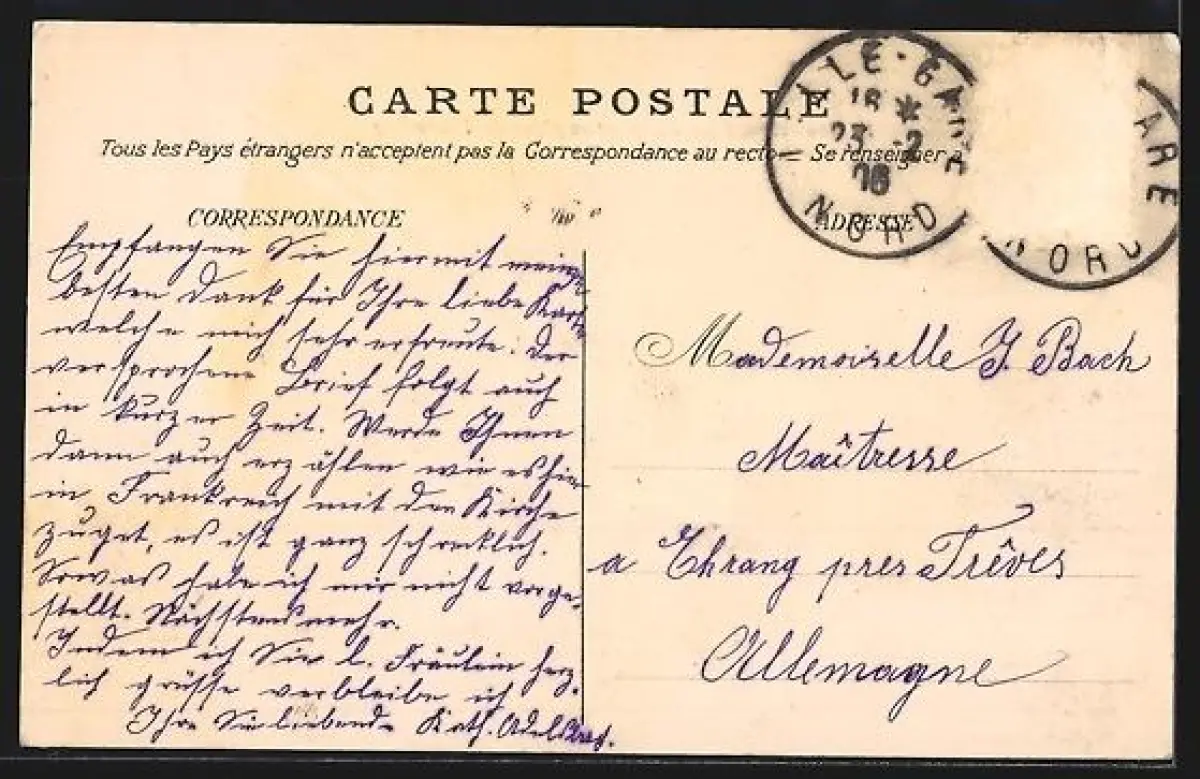 CARTE POSTALE
Tous les Pays étrangers n'acceptent pas la Correspondance au recto — Se renseigner à
CORRESPONDANCE
ADRESSE
LILLE-GARE
16 *
23 -2
06
NORD
ARE
NORD
Empfangen Sie hiermit meinen
besten Dank für Ihre liebe Karte
welche mich sehr erfreute. Der
versprochene Brief folgt auch
in kurzer Zeit. Werde Ihnen
dann auch erzählen wie es hier
in Frankreich mit der Kirche
zuget, es ist ganz schrecklich.
Sowas habe ich mir nicht vorge-
stellt. Nächstens mehr.
Indem ich Sie l. Fräulein herz-
lich grüsse verbleibe ich
Ihre Sie liebende Kath.
Mademoiselle J. Bach
Maîtresse
a Ehrang pres Trêves
Allemagne